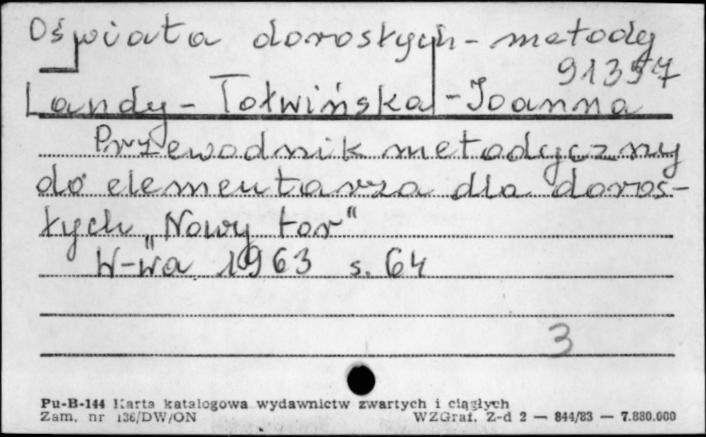 Oświata dorosłych - metody
91357
Landy-Tołwińska-Joanna
Przewodnik metodyczny
do elementarza dla doros-
łych "Nowy tor"
W-wa 1963 s. 64
3
Pu-B-144 Karta katalogowa wydawnictw zwartych i ciągłych
Zam. nr 136/DW/ON WZGraf. Z-d 2 — 844/83 — 7.880.000